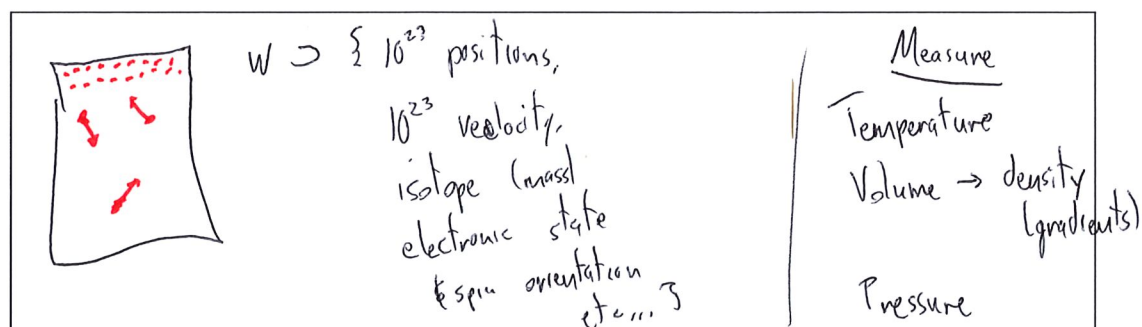 W ⊃ { 10^23 positions,
10^23 velocity,
isotope (mass)
electronic state
& spin orientation
etc... }
Measure
Temperature
Volume → density
(gradients)
Pressure